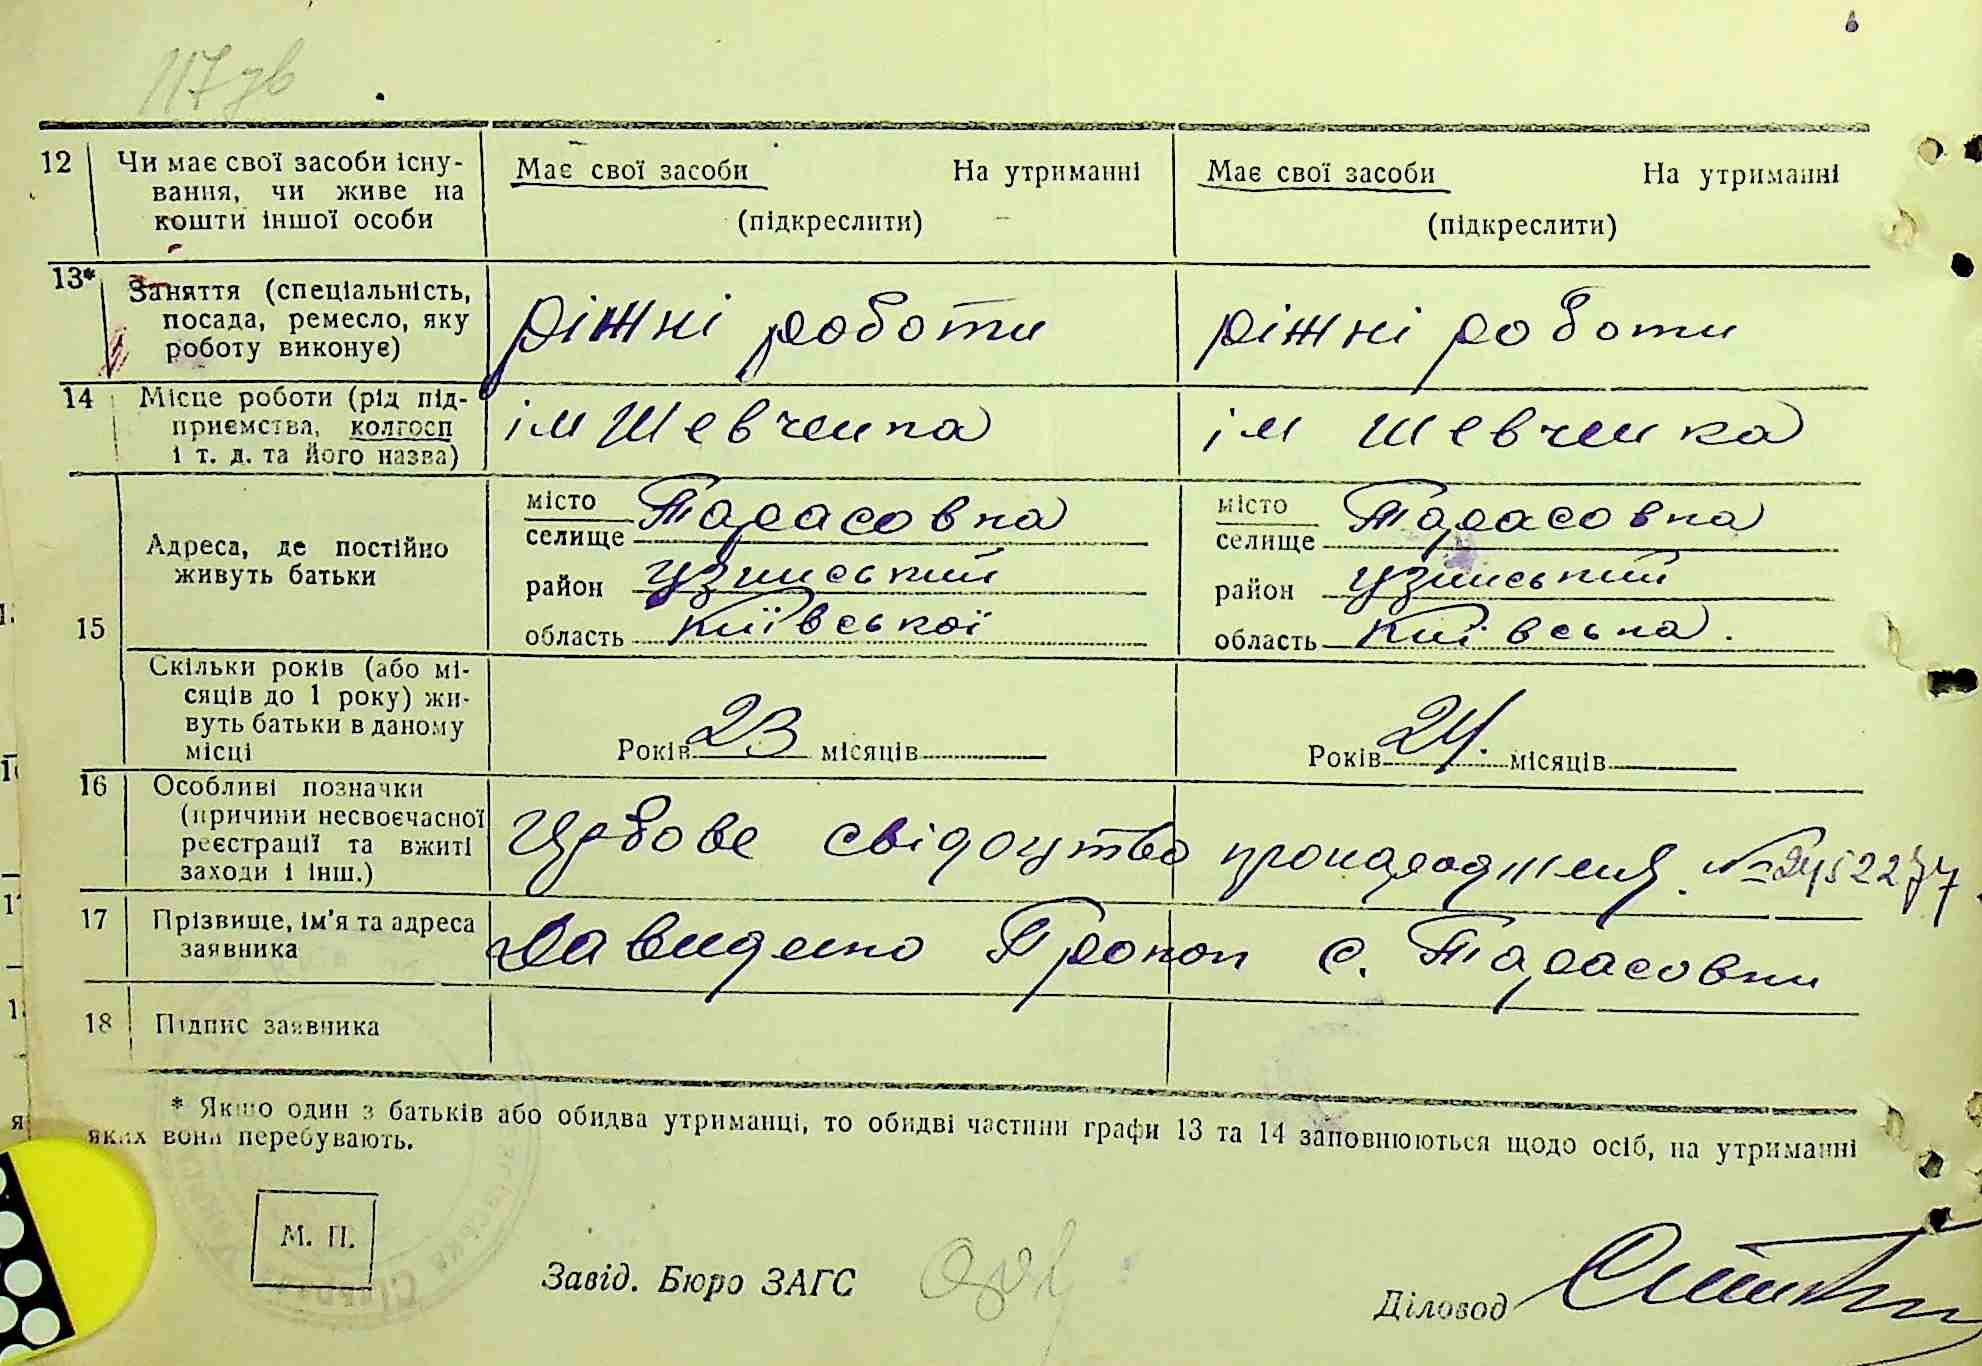 117 зв
12 Чи має свої засоби існу-
вання, чи живе на
кошти іншої особи
Має свої засоби На утриманні
(підкреслити)
Має свої засоби На утриманні
(підкреслити)
13* Заняття (спеціальність,
посада, ремесло, яку
роботу виконує)
ріжні роботи
ріжні роботи
14 Місце роботи (рід під-
приємства, колгосп
і т. д. та його назва)
ім Шевченка
ім Шевченка
15 Адреса, де постійно
живуть батьки
місто
селище Тарасовка
район Узинський
область Київської
місто
селище Тарасовка
район Узинський
область Київська.
Скільки років (або мі-
сяців до 1 року) жи-
вуть батьки в даному
місці
Років 23 місяців
Років 24. місяців
16 Особливі позначки
(причини несвоєчасної
реєстрації та вжиті
заходи і інш.)
свідоцтво про народження. № 2452277
17 Прізвище, ім'я та адреса
заявника
Давиденко Прокоп с. Тарасовки
18 Підпис заявника
* Якщо один з батьків або обидва утриманці, то обидві частини графи 13 та 14 заповнюються щодо осіб, на утриманні
яких вони перебувають.
М. П.
Завід. Бюро ЗАГС
Діловод